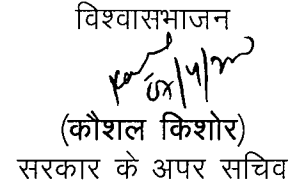 विश्वासभाजन
(कौशल किशोर)
सरकार के अपर सचिव